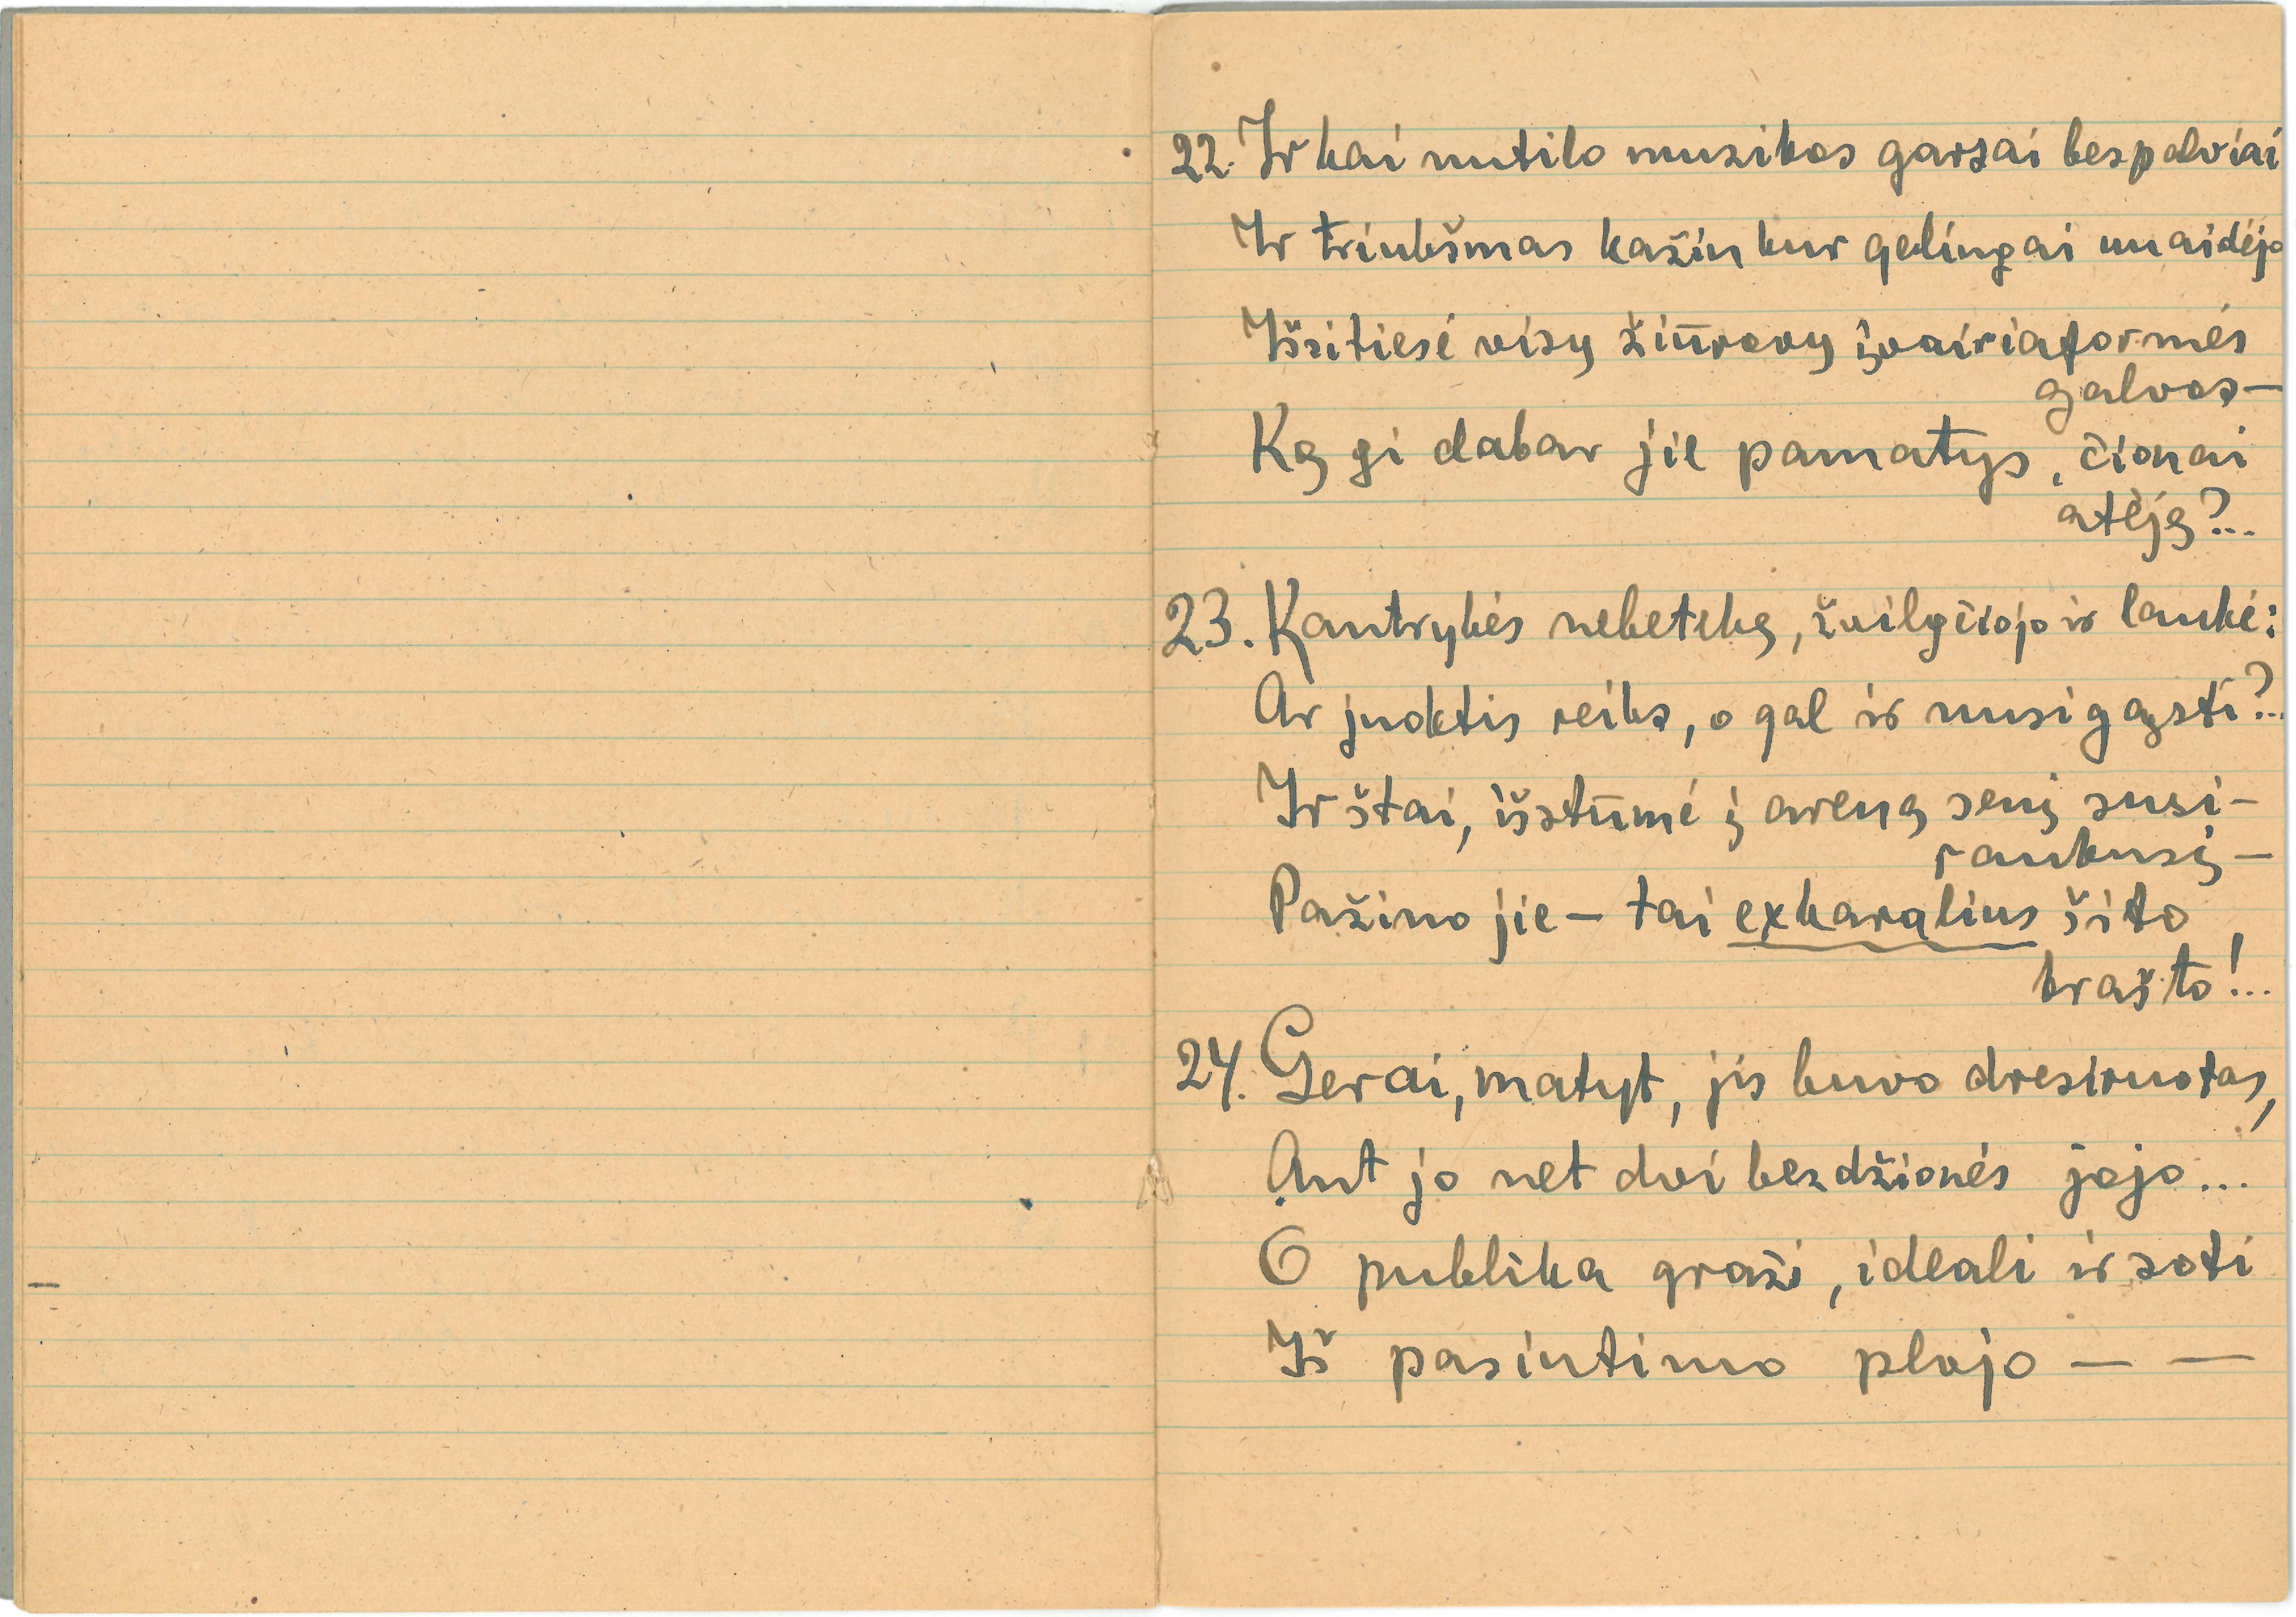 22. Ir kai nutilo muzikos garsai bespalviai
Ir triukšmas kažin kur gelingai nuaidėjo
Išsitiesė visų žiūrovų įvairiaformės
galvos—
Ką gi dabar jie pamatys, čionai
atėję?...
23. Kantrybės nebetekę, žvilgčiojo ir laukė:
Ar juoktis reiks, o gal ir nusigąsti?..
Ir štai, išstūmė į areną senį susi-
raukusį—
Pažino jie — tai exkaralius šito
krašto!...
24. Gerai, matyt, jis buvo dresiruotas,
Ant jo net dvi bezdžionės jojo...
O publika graži, ideali ir soti
Iš pasiutimo plojo — —